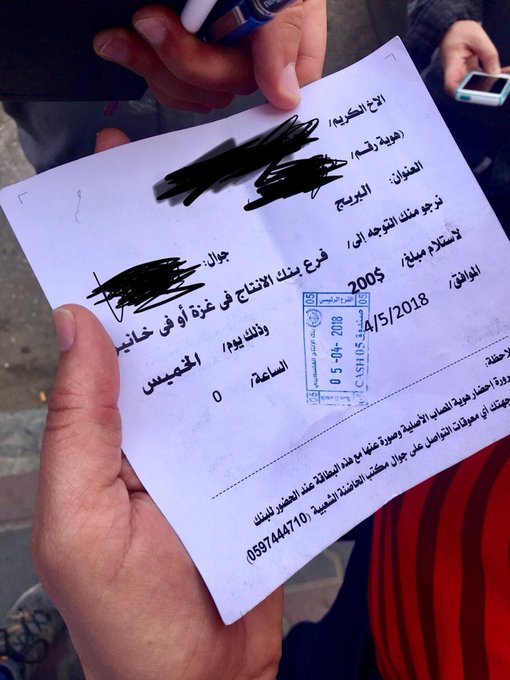 الاخ الكريم/
(هوية رقم/
العنوان: البريج
جوال:
نرجو منك التوجه إلى/ فرع بنك الانتاج في غزة أو في
لاستلام مبلغ/ 200$
وذلك يوم/ الخميس
الموافق/ 4/5/2018
الساعة/ 0
05 الفرع الرئيسي 05
صندوق CASH 05
05-04-2018
بنك الانتاج الفلسطيني
إحضار هوية المصاب الأصلية وصورة عنها مع هذه البطاقة عند الحضور للبنك
أي معوقات التواصل على جوال مكتب الحاضنة الشعبية (0597444710)